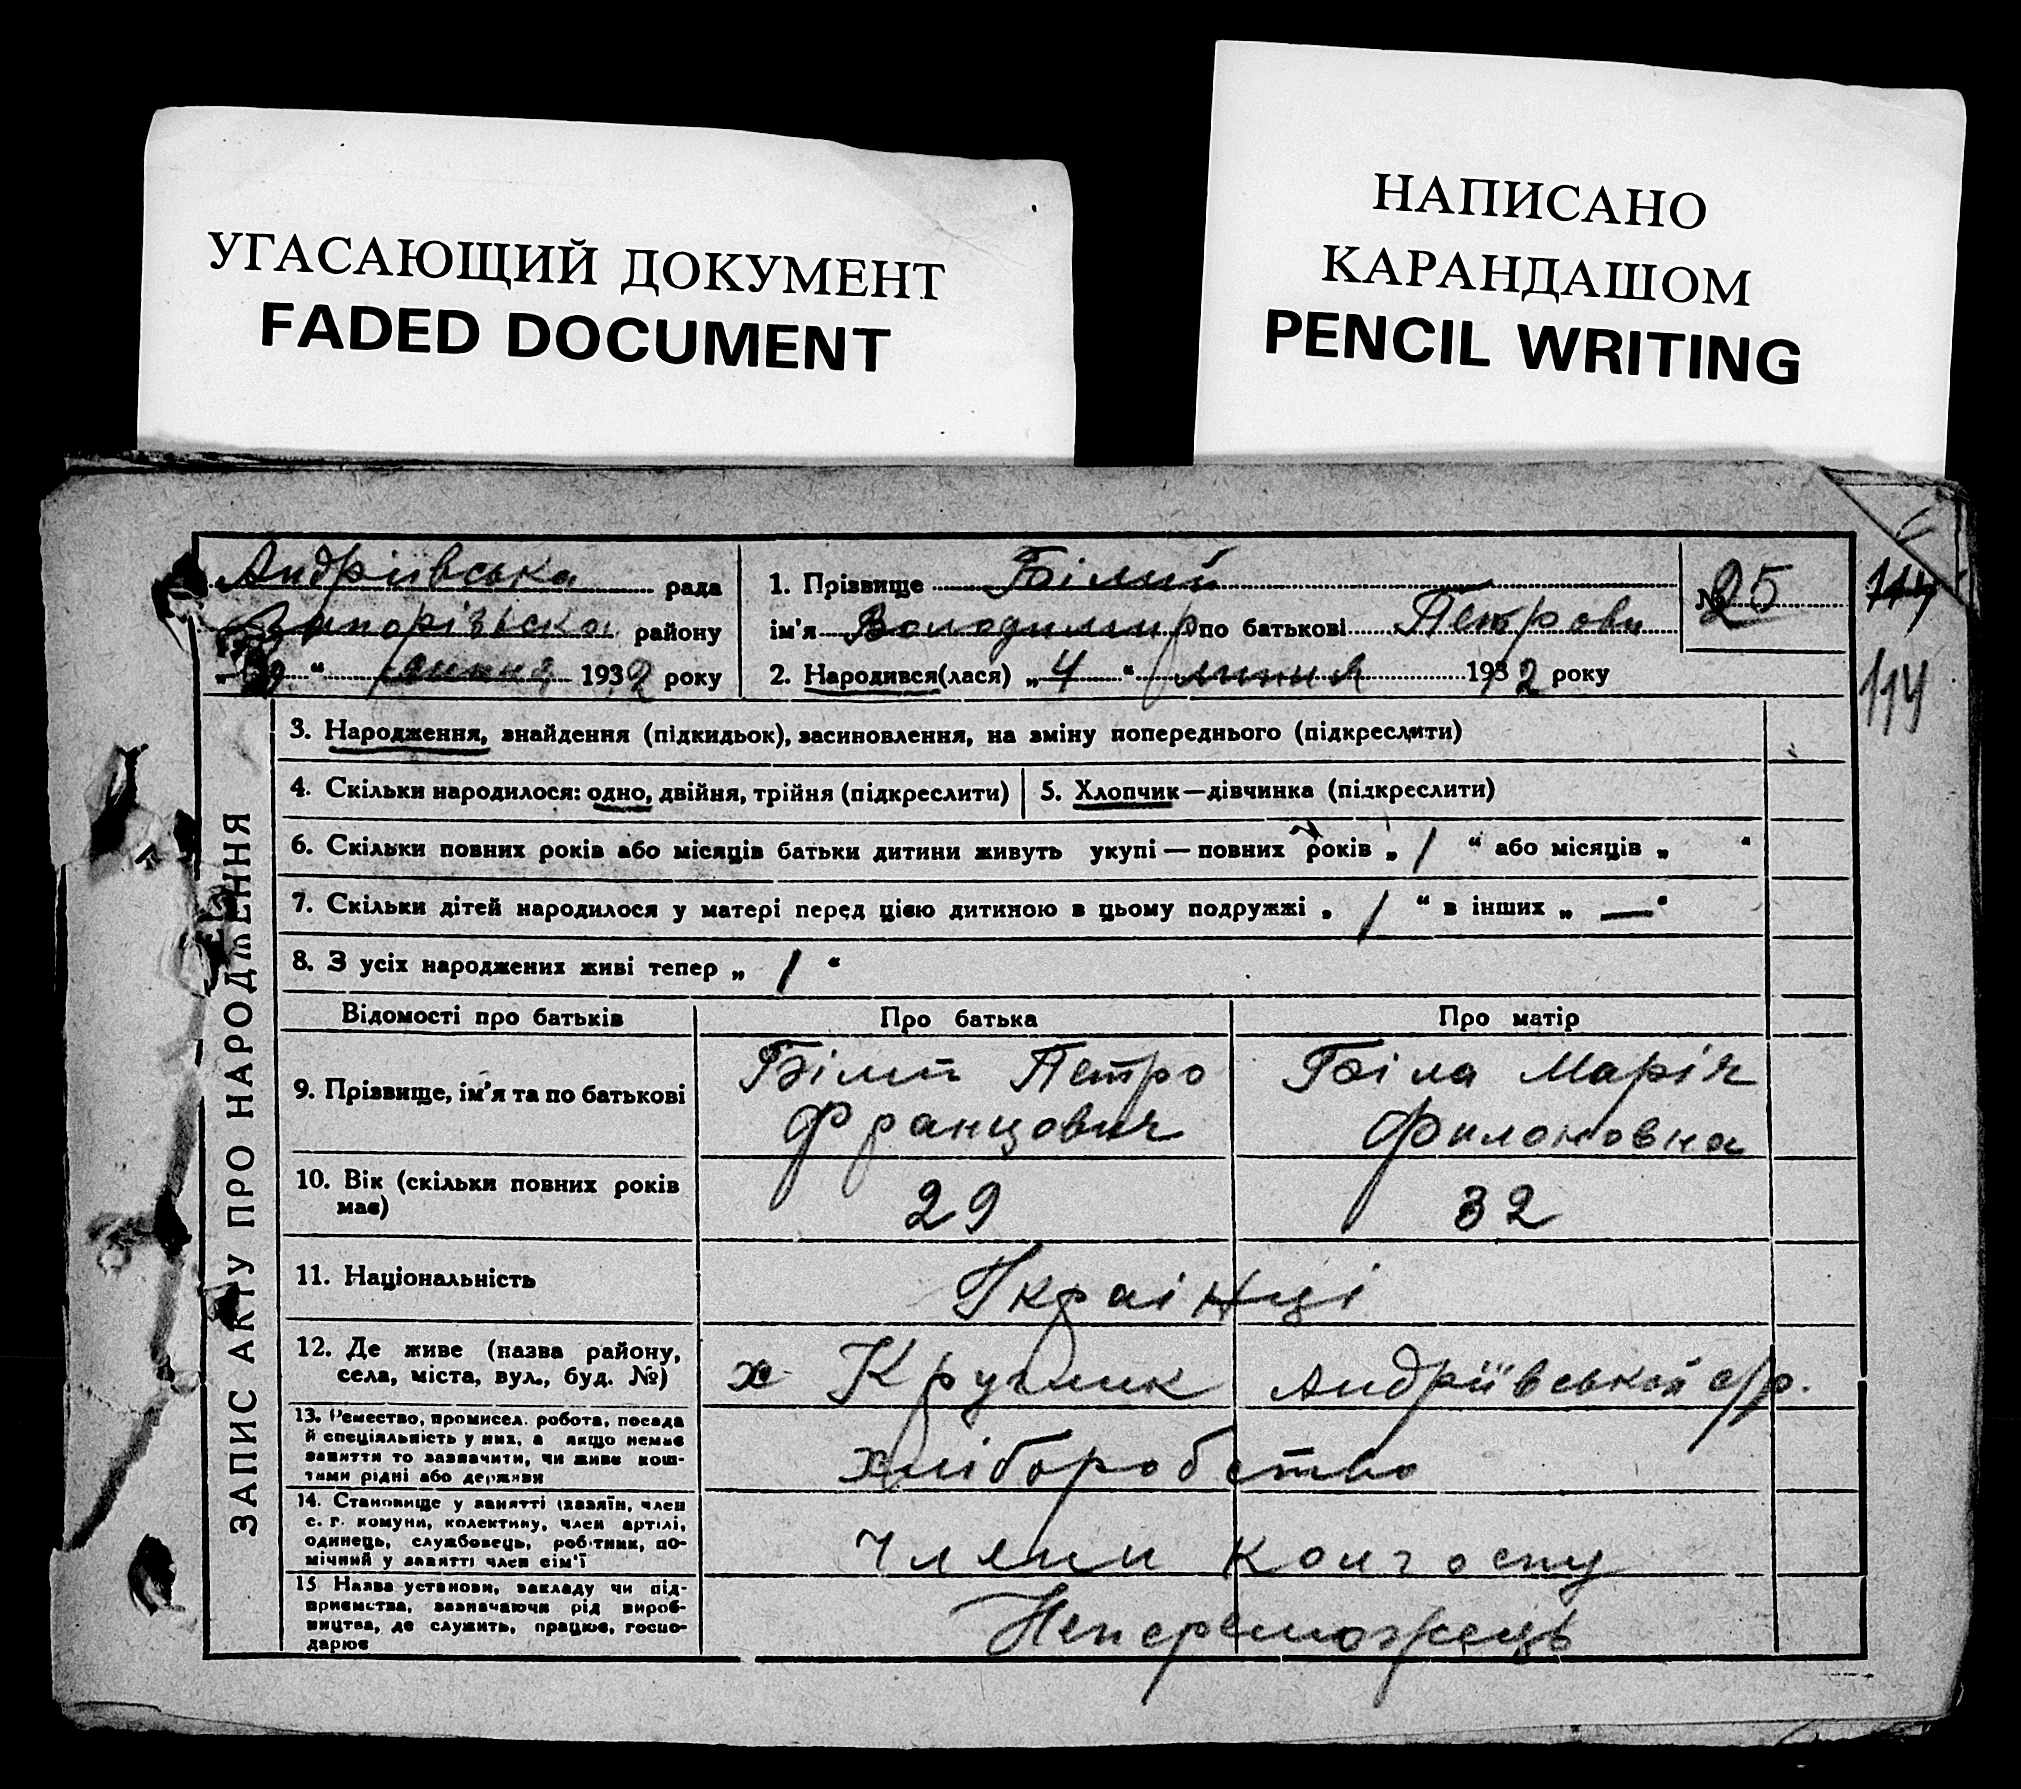 УГАСАЮЩИЙ ДОКУМЕНТ
FADED DOCUMENT
НАПИСАНО
КАРАНДАШОМ
PENCIL WRITING
Андріївська рада
Запорізька району
" липня 1932 року
1. Прізвище Білий
ім'я Володимир по батькові Петрови
2. Народився(лася) „4" липня 1932 року
№ 25
114
114
ЗАПИС АКТУ ПРО НАРОДЖЕННЯ
3. Народження, знайдення (підкидьок), засиновлення, на зміну попереднього (підкреслити)
4. Скільки народилося: одно, двійня, трійня (підкреслити)
5. Хлопчик—дівчинка (підкреслити)
6. Скільки повних років або місяців батьки дитини живуть укупі — повних років „ 1 " або місяців „ "
7. Скільки дітей народилося у матері перед цією дитиною в цьому подружжі „ 1 " в інших „ — "
8. З усіх народжених живі тепер „ 1 "
Відомості про батьків
Про батька
Про матір
9. Прізвище, ім'я та по батькові
Білий Петро
Францович
Біла Марія
Филоновна
10. Вік (скільки повних років
має)
29
32
11. Національність
Українці
12. Де живе (назва району,
села, міста, вул., буд. №)
х Круглик Андріївської с/р.
13. Ремество, промисел, робота, посада
й спеціяльність у них, а якщо немає
заняття то зазначити, чи живе кош-
тами рідні або держави
хліборобство
14. Становище у занятті (хазяїн, член
с. г. комуни, колективу, член артілі,
одинець, службовець, робітник, по-
мічний у занятті член сім'ї
члени колгоспу
15 Назва установи, закладу чи під-
приємства, зазначаючи рід вироб-
ництва, де служить, працює, госпо-
дарює
Непереможець